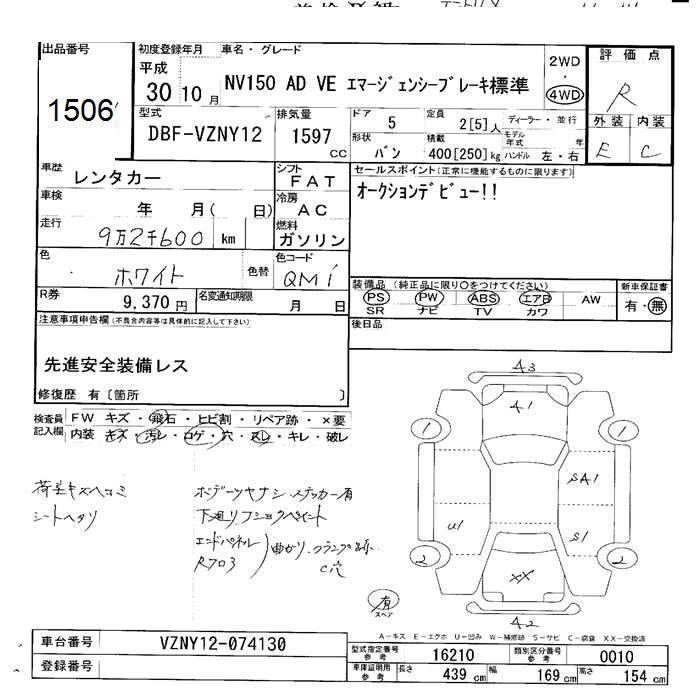 出品番号
1506
初度登録年月
平成
30 10 月
車名・グレード
NV150 AD VE エマージェンシーブレーキ標準
2WD
・
4WD
評価点
R
外装 内装
E C
型式
DBF-VZNY12
排気量
1597
CC
ドア
5
定員
2[5]人
ディーラー・並行
形状
バン
積載
400[250]kg
モデル年式 年
ハンドル 左・右
車歴
レンタカー
シフト
FAT
車検
年 月( 日)
冷房
AC
走行
9万2千600 km
燃料
ガソリン
色
ホワイト
色替
色コード
QM1
R券
9,370 円
名変通知期限
月 日
セールスポイント(正常に機能するものに限ります)
オークションデビュー!!
装備品 (純正品に限り○をつけてください)
PS PW ABS エアB AW
SR ナビ TV カワ
新車保証書
有・無
後日品
注意事項申告欄(不具合内容等は具体的に記入して下さい)
先進安全装備レス
修復歴 有〔箇所 〕
検査員記入欄
FW キズ・飛石・ヒビ割・リペア跡・×要
内装 キズ・汚レ・コゲ・穴・スレ・キレ・破レ
荷室キズヘコミ
シートヘタリ
ステッカー有
下廻りブ
エンドパネル
曲がり
C穴
A3
A1
1
1
SA1
U1
S1
2
2
XX
A2
有
スペア
A-キズ E-エクボ U-凹み W-補修跡 S-サビ C-腐食 XX-交換済
車台番号
VZNY12-074130
登録番号
型式指定番号 参考
16210
類別区分番号 参考
0010
車庫証明用 参考
長さ 439 cm
幅 169 cm
高さ 154 cm